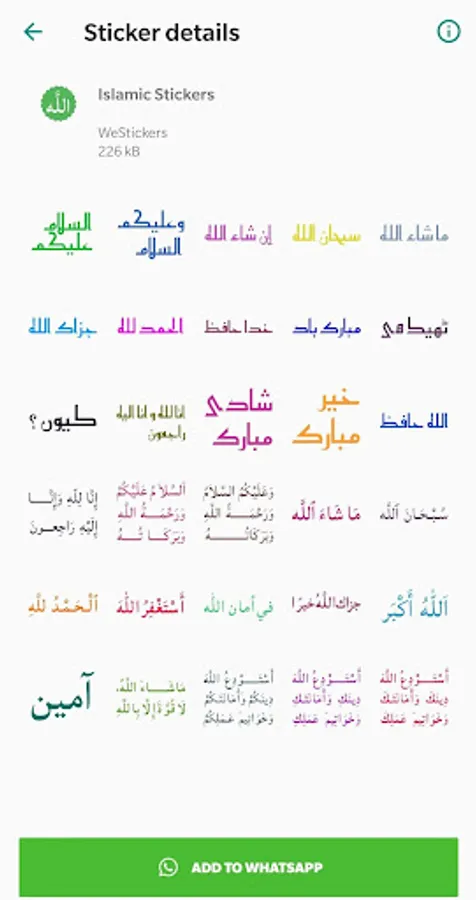 Sticker details
الله
Islamic Stickers
WeStickers
226 kB
السلام
عليكم
وعليكم
السلام
إن شاء الله
سبحان الله
ماشاء الله
جزاك الله
الحمد لله
خدا حافظ
مبارک باد
ٹھیک ہی
کیوں ؟
انا لله و انا الیه
راجعون
شادی
مبارک
خیر
مبارک
الله حافظ
إِنَّا لِلَّهِ وَإِنَّـــا
إِلَيْهِ رَاجِعــونَ
اَلسَّلاَمُ عَلَيْكُمْ
وَرَحْمَةُ اللَّهِ
وَبَرَكَا تُـــهُ
وَعَلَيْكُمُ السَّـلاَمُ
وَرَحْمَـــةُ اللَّهِ
وَبَرَكَاتُـــــهُ
مَا شَاءَ ٱللَّٰه
سُبْحَانَ ٱللَّٰه
اَلْحَمْدُ لِلَّهِ
أَسْتَغْفِرُ اللهَ
في أمان الله
جزاك اللهُ خيرا
اَللهُ أَكْبَر
آمين
مَا شَـــاءَ اللَّهُ.
لَا قُوَّةَ إِلَّا بِاللَّهِ
أَسْتَـــوْدِعُ اللَّهَ
دِينَكُمْ وَأَمَانَتَكُمْ
وَخَوَاتِيمَ عَمَلِكُمْ
أَسْتَـــوْدِعُ اللَّهَ
دِينَكِ وَأَمَانَتَكِ
وَخَوَاتِيمَ عَمَلِكِ
أَسْتَـــوْدِعُ اللَّهَ
دِينَكَ وَأَمَانَتَكَ
وَخَوَاتِيمَ عَمَلِكَ
ADD TO WHATSAPP